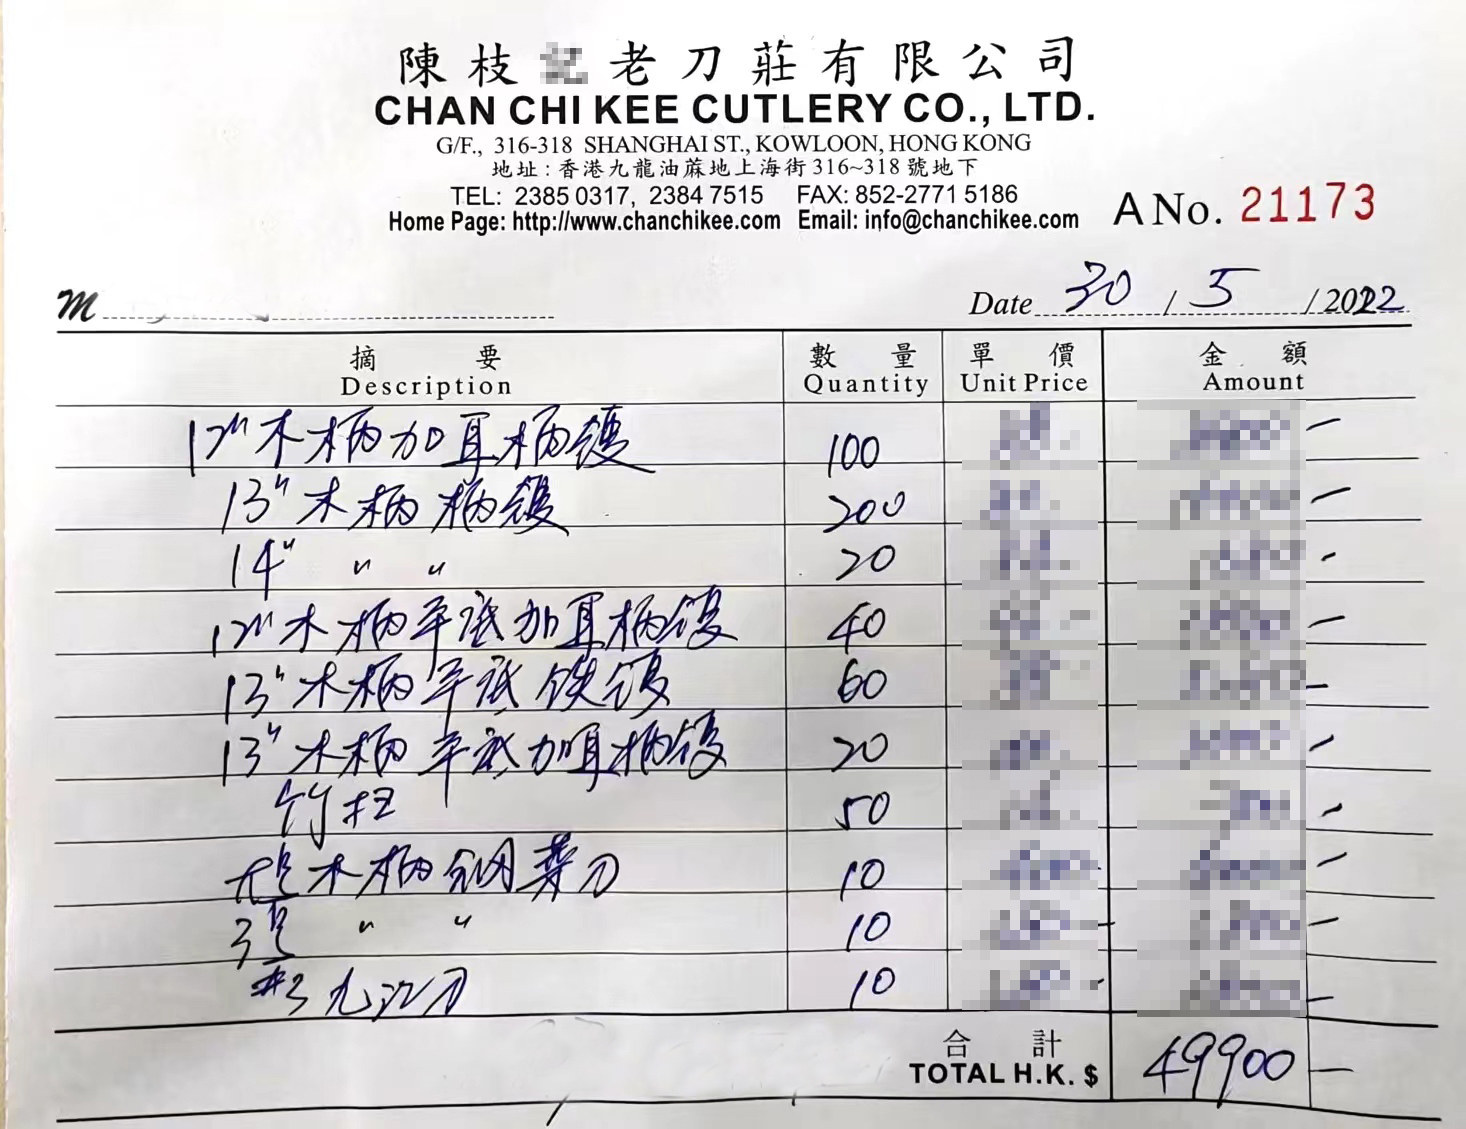 陳枝記老刀莊有限公司
CHAN CHI KEE CUTLERY CO., LTD.
G/F., 316-318 SHANGHAI ST., KOWLOON, HONG KONG
地址：香港九龍油蔴地上海街316~318號地下
TEL: 2385 0317, 2384 7515 FAX: 852-2771 5186
Home Page: http://www.chanchikee.com Email: info@chanchikee.com
A No. 21173
M
Date 30 / 5 / 2022
摘要 數量 單價 金額
Description Quantity Unit Price Amount
12" 木柄加耳柄鑊 100
13" 木柄柄鑊 200
14" " " 20
12" 木柄平底加耳柄鑊 40
13" 木柄平底鉄鑊 60
13" 木柄平底加耳柄鑊 20
竹扫 50
木柄鋼菜刀 10
3号 " " 10
#3 九江刀 10
合計
TOTAL H.K. $ 49900 —